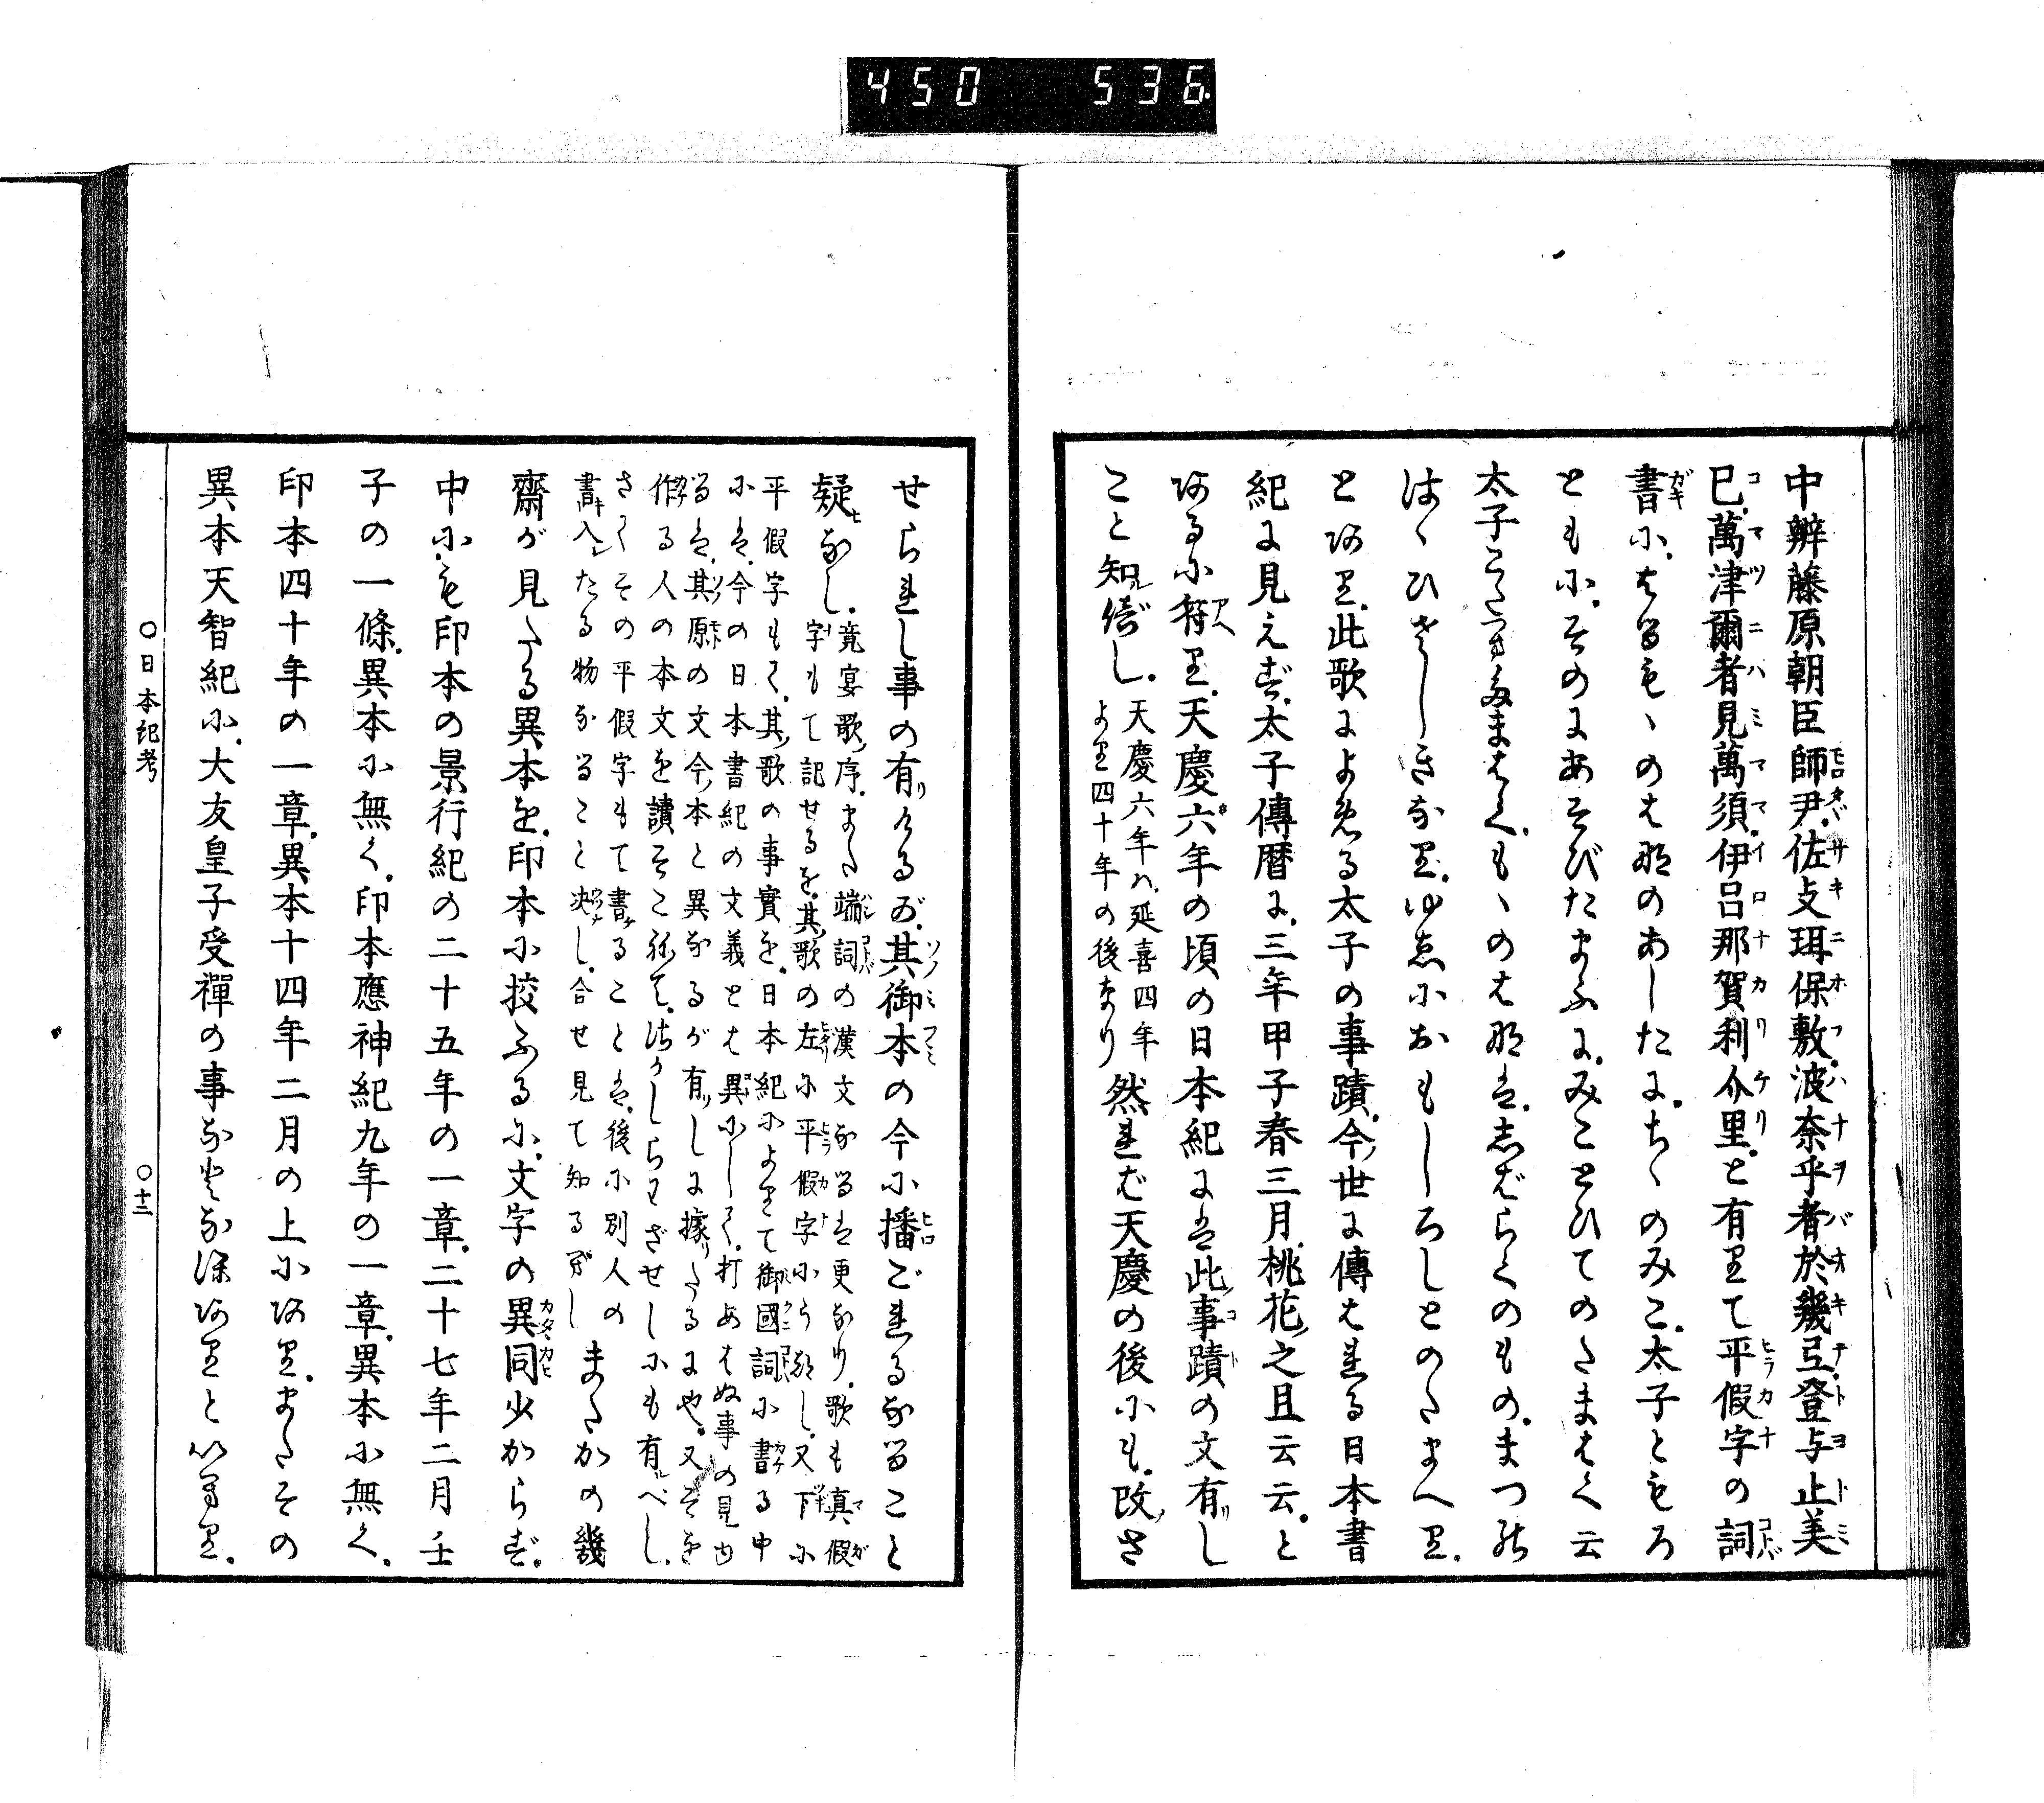 450 536
中辨藤原朝臣師尹佐攴珥保敷波奈乎者於幾弖登与止美
巳萬津爾者見萬須伊呂那賀利介里と有りて平假字の詞
書に はるもゝのはなのあしたにちゝのみこ太子ともろ
ともにそのにあそびたまふにみことひてのたまはく云
太子こたへたまはくもゝのはなはしばらくのものまつの
はゝひさしきなりゆゑにおもしろしとのたまへり
とあり此歌によめる太子の事蹟今世に傳はれる日本書
紀に見えず太子傳暦に三年甲子春三月桃花之旦云云と
あるに符へり天慶六年の頃の日本紀には此事蹟の文有し
こと知べし 天慶六年ハ延喜四年
より四十年の後なり 然れば天慶の後にも改さ
せられし事の有けるが其御本の今に播ごれるなること
疑なし 竟宴歌序また端詞の漢文なるは更なり歌も真假
字もて記せるを其歌の左に平假字にうつし又下に
平假字もて其歌の事實を日本紀によりて御國詞に書る中
には今の日本書紀の文義とは異にして打あはぬ事の見ゆ
るは其願の文今本と異なるが有しに據りたるにや又そを
作る人の本文を讀そこねてはうしらわざせしにも有べし
さてその平假字もて書ることは後に別人の
書入たる物なること決し合せ見て知るべし またかの幾
齋が見たる異本を印本に挍ふるに文字の異同少からず
中にも印本の景行紀の二十五年の一章二十七年二月壬
子の一條異本に無く印本應神紀九年の一章異本に無く
印本四十年の一章異本十四年二月の上にありまたその
異本天智紀に大友皇子受禪の事などなほありといへり
〇日本紀考
〇十三